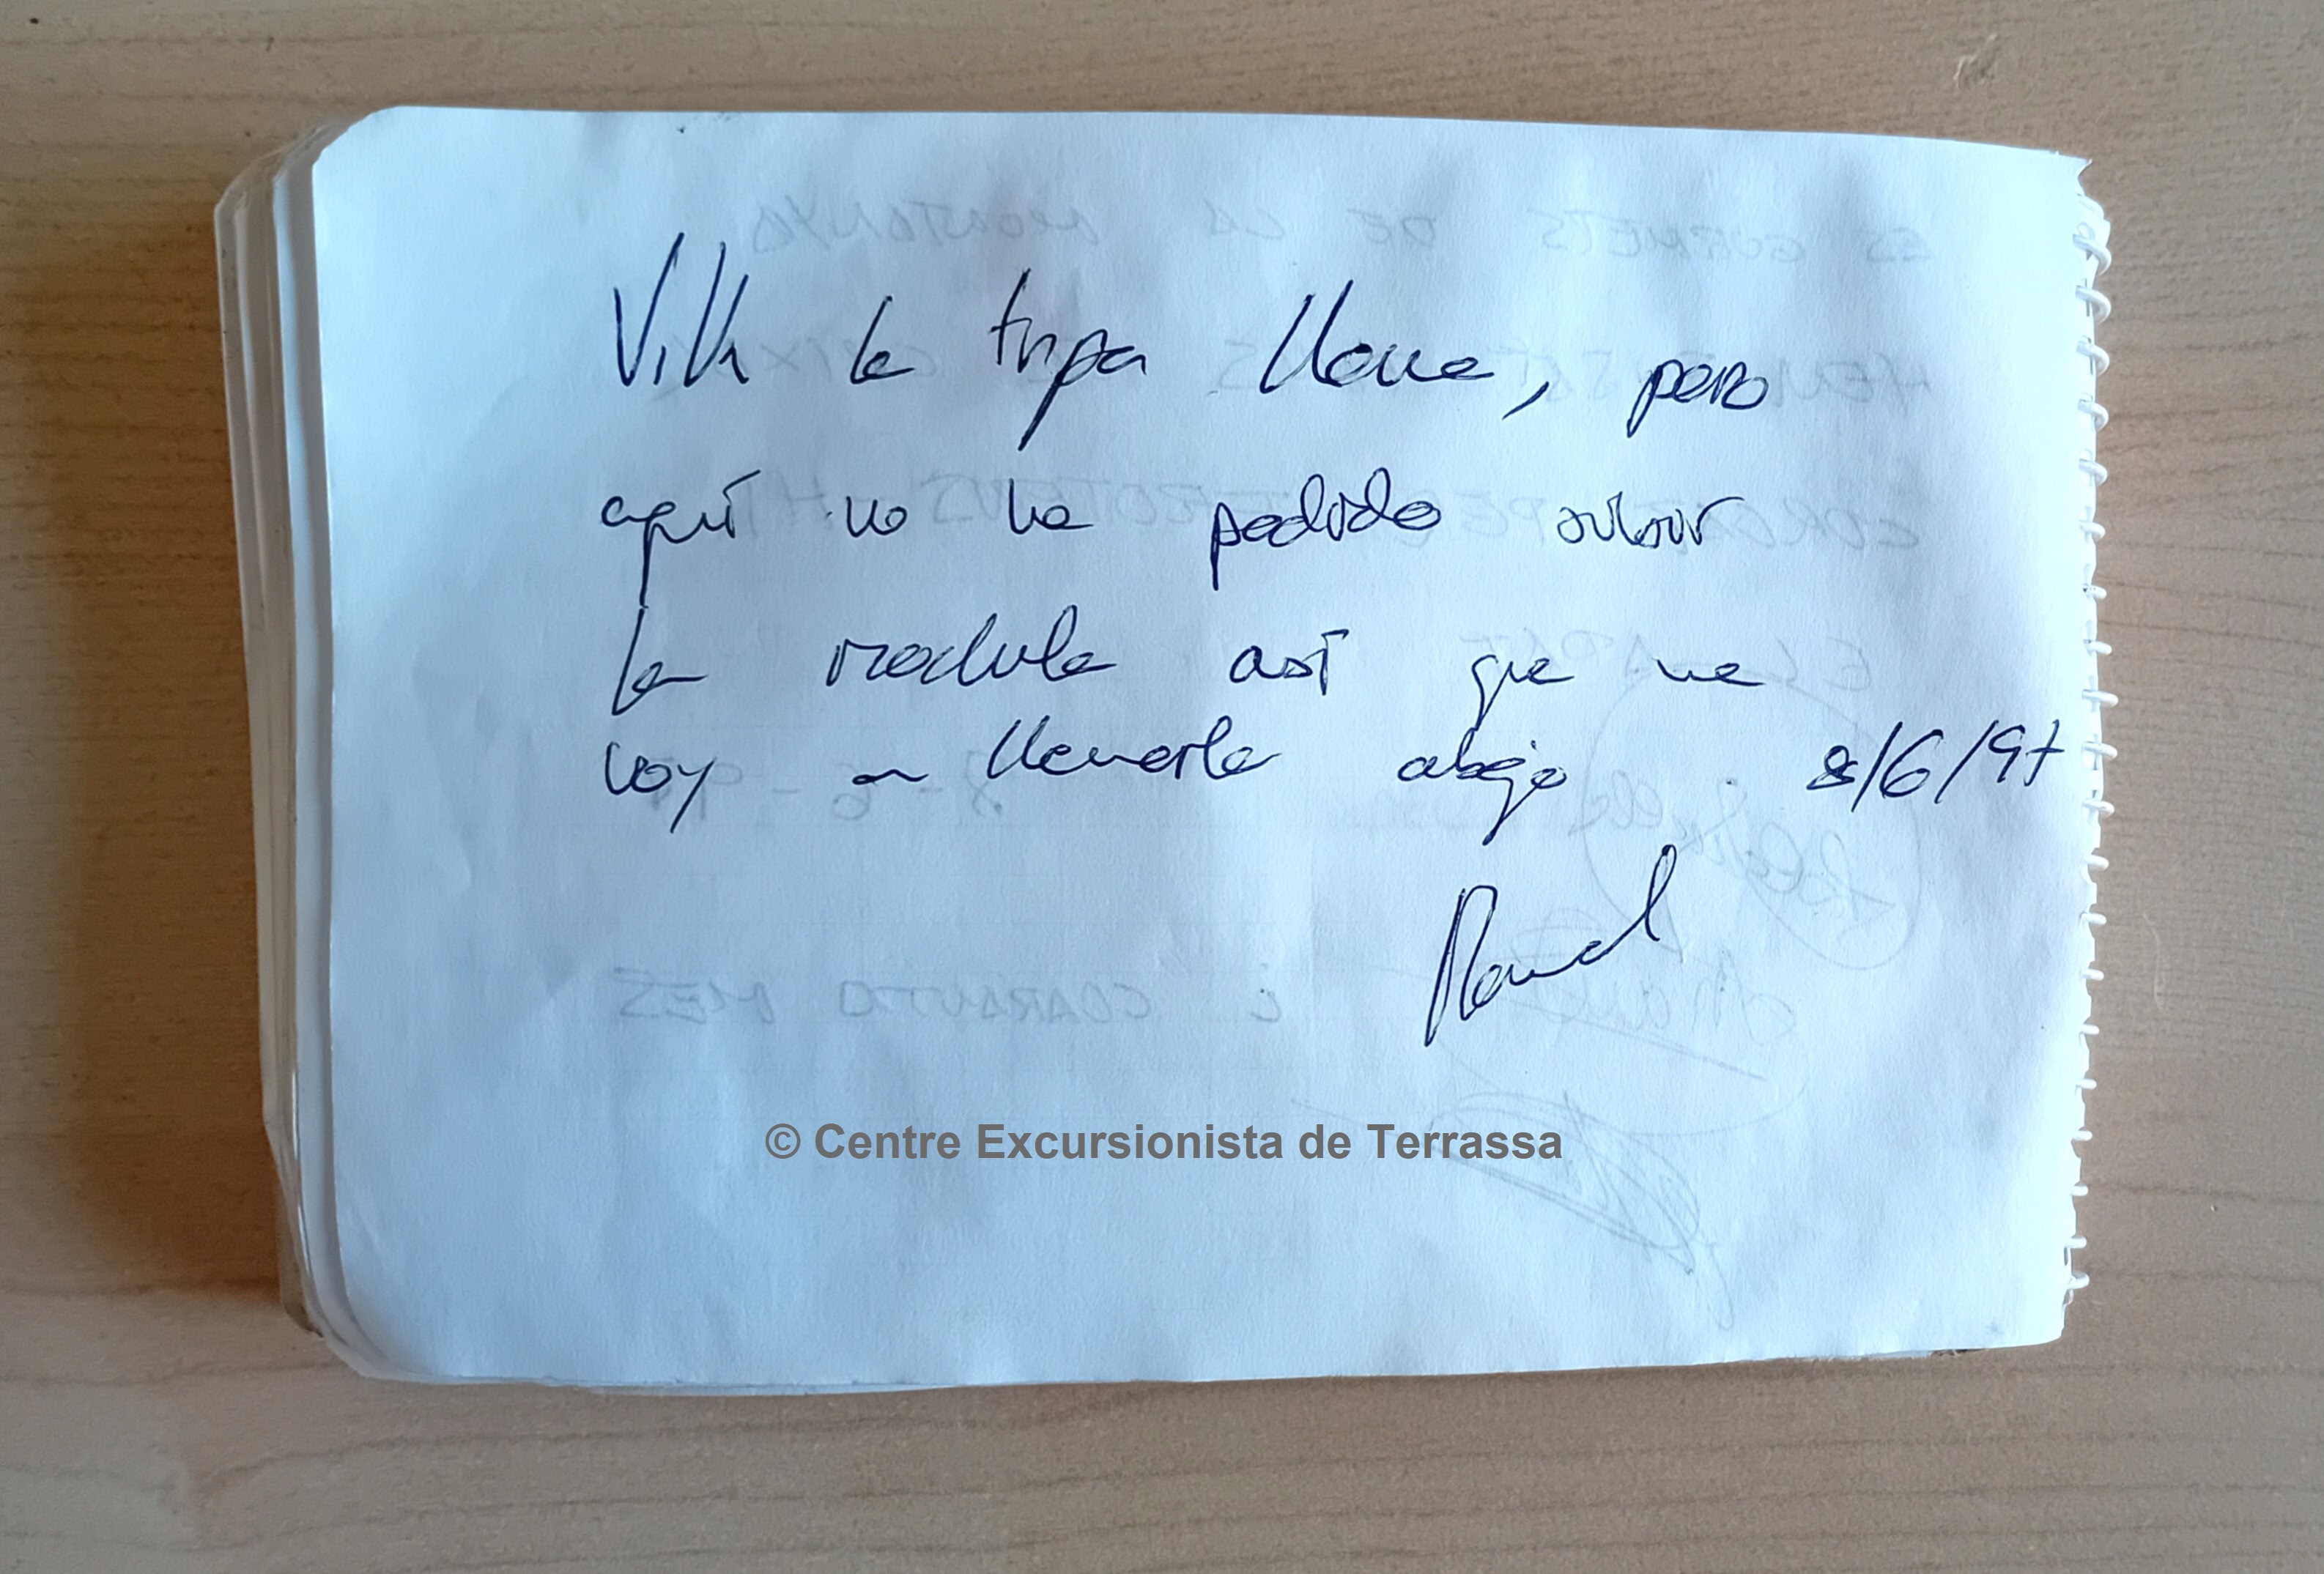 Viva la tripa llena, pero
aquí no he podido subir
la médula así que me
voy a llenarla abajo 8/6/97
Manel
© Centre Excursionista de Terrassa